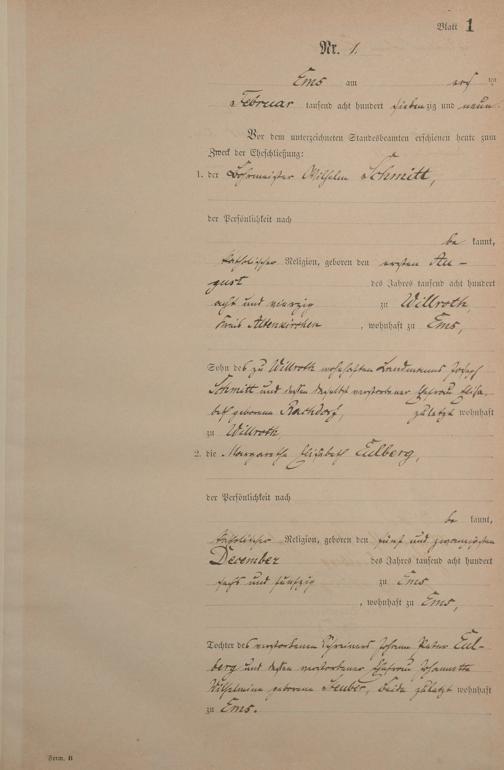 Blatt 1
Nr. 1.
Ems am elf ten
Februar tausend acht hundert siebenzig und neun.
Vor dem unterzeichneten Standesbeamten erschienen heute zum
Zweck der Eheschließung:
1. der Wilhelm Schmitt,
der Persönlichkeit nach
be kannt,
katholischer Religion, geboren den ersten Au-
gust des Jahres tausend acht hundert
acht und vierzig zu Willroth,
Kreis Altenkirchen, wohnhaft zu Ems,
Sohn des zu Willroth wohnhaften Landmanns Joseph
Schmitt und dessen daselbst verstorbener Ehefrau Elisa-
beth geborene Rachdorf, zuletzt wohnhaft
zu Willroth
2. die Margaretha Elisabeth Eulberg,
der Persönlichkeit nach
be kannt,
katholischer Religion, geboren den fünf und zwanzigsten
December des Jahres tausend acht hundert
sechs und fünfzig zu Ems
, wohnhaft zu Ems,
Tochter des verstorbenen Schreiners Johann Peter Eul-
berg und dessen verstorbener Ehefrau Johannetta
Wilhelmine geborene Steuber, beide zuletzt wohnhaft
zu Ems.
Form. B